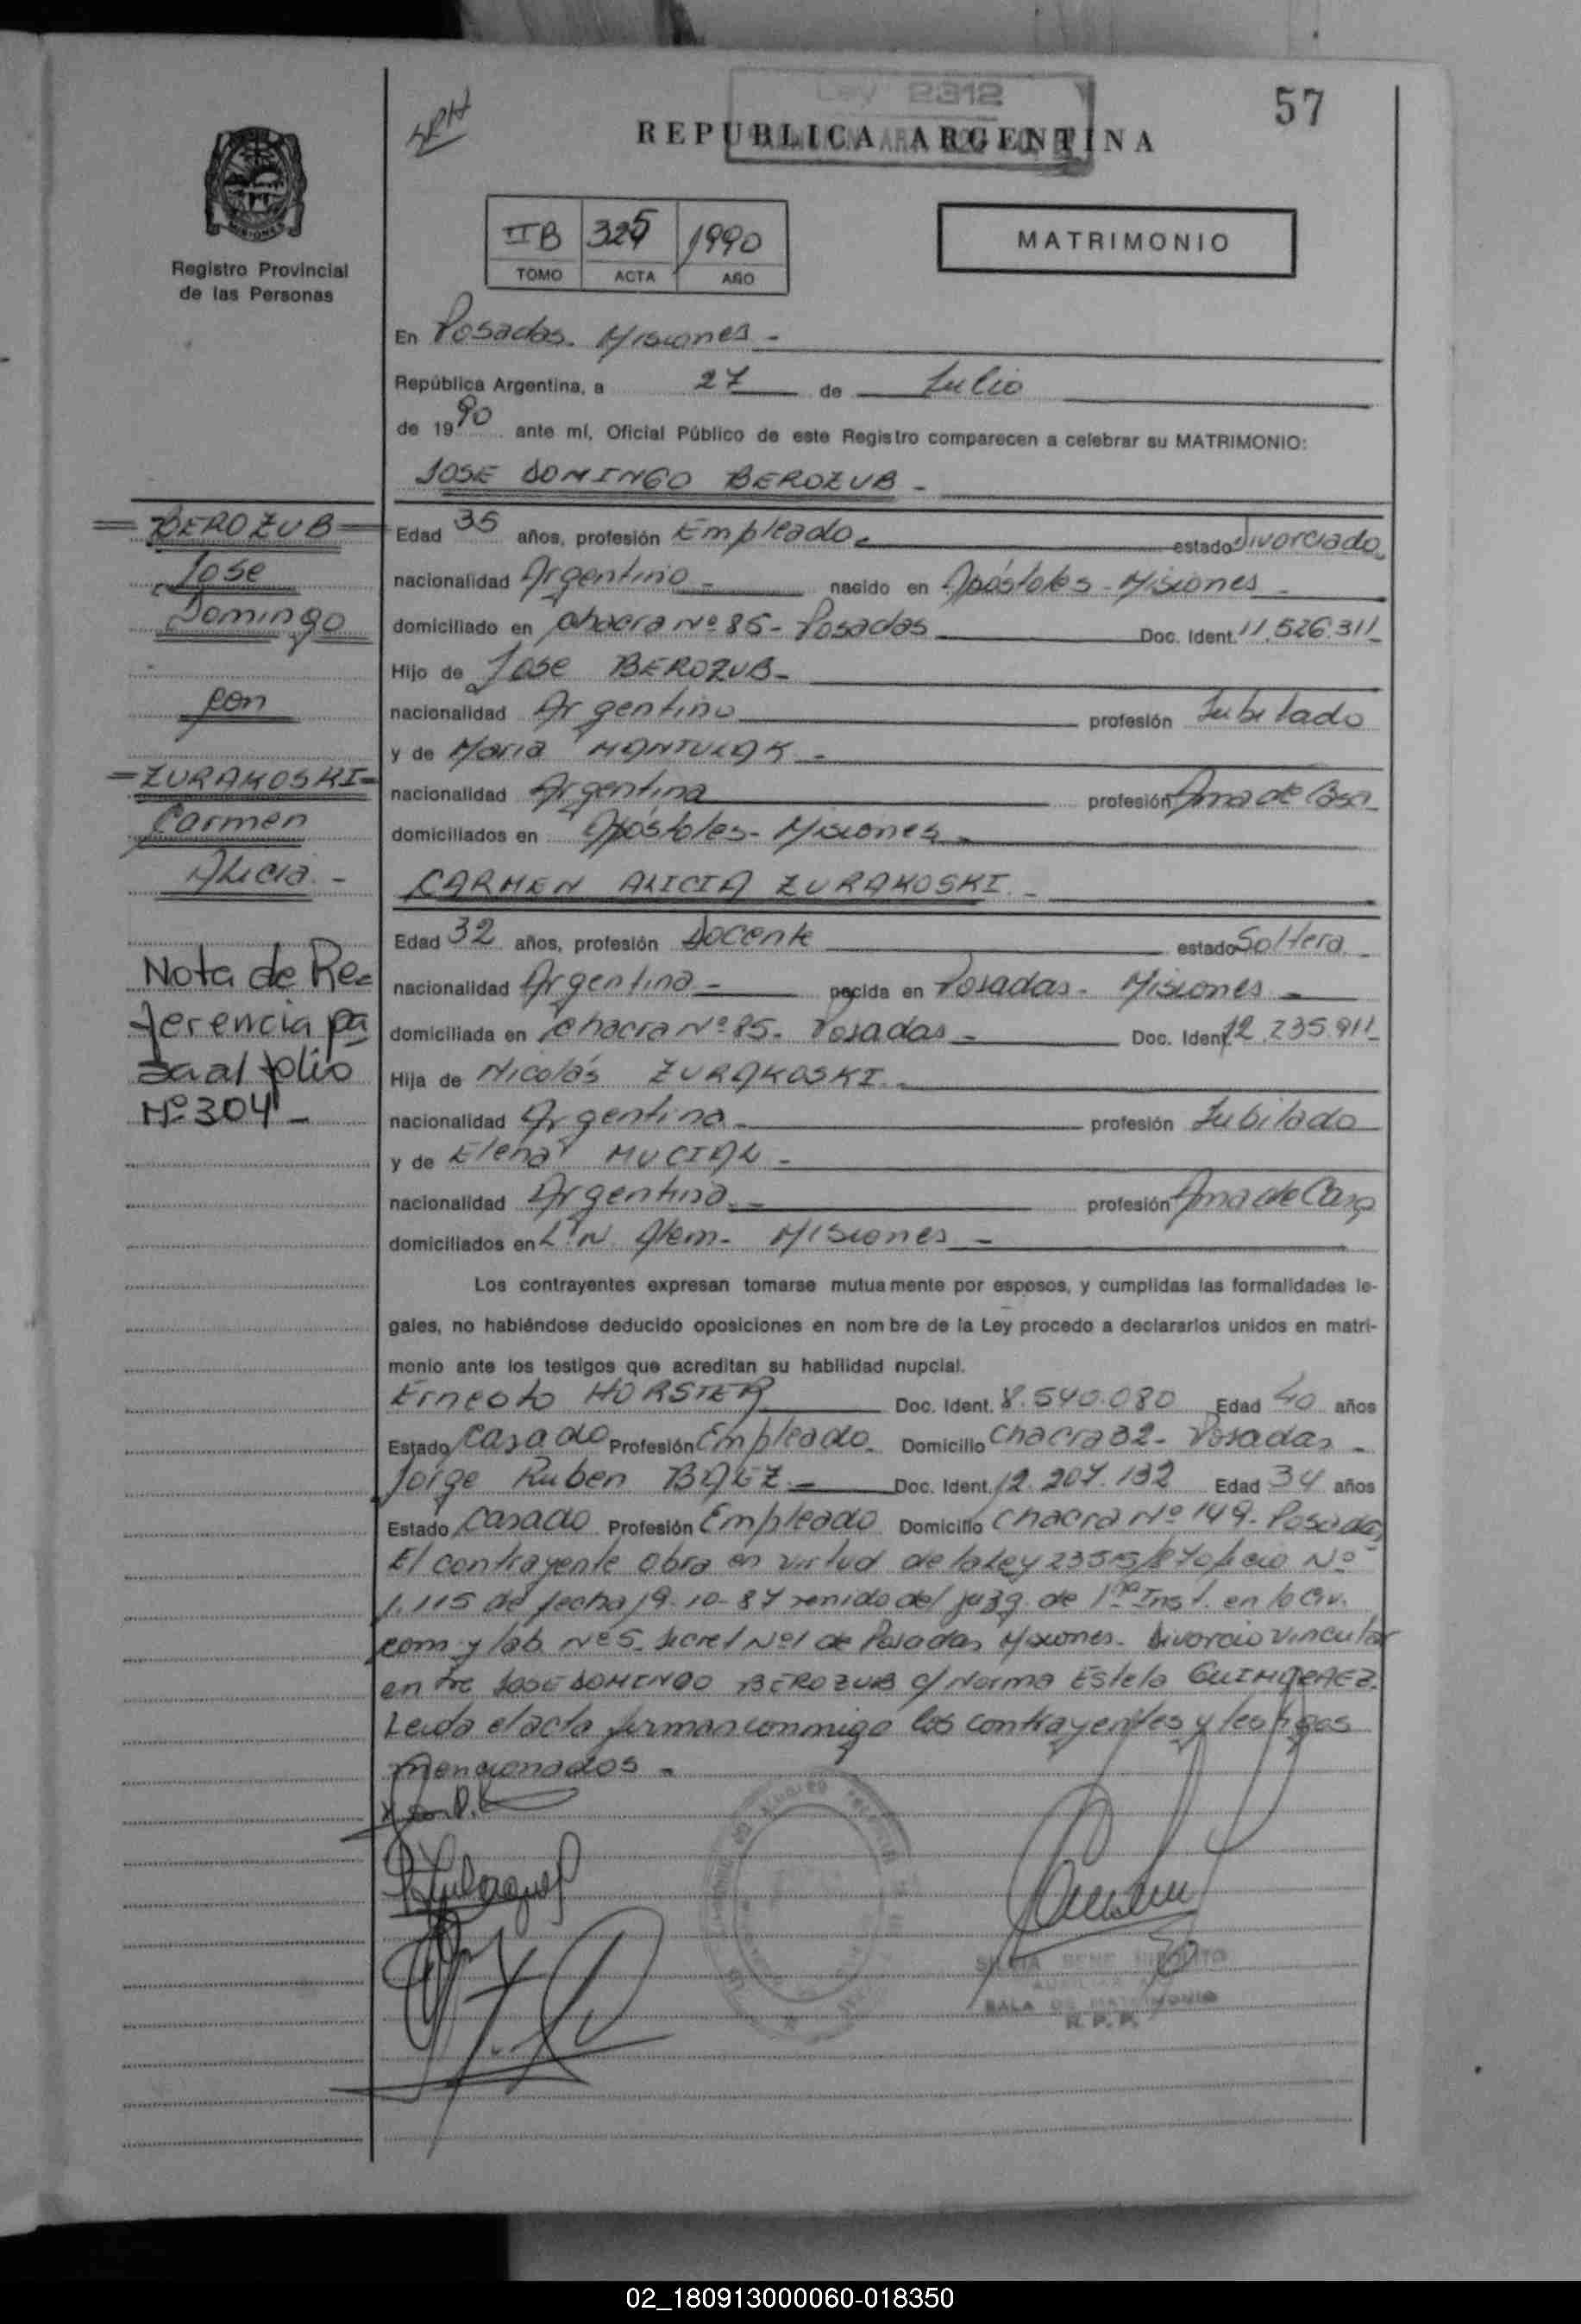 57
Ley 2312
REPUBLICA ARGENTINA
MISIONES
Registro Provincial
de las Personas
IIB 325 1990
TOMO ACTA AÑO
MATRIMONIO
En Posadas. Misiones -
República Argentina, a 27 de Julio
de 1990 ante mí, Oficial Público de este Registro comparecen a celebrar su MATRIMONIO:
JOSE DOMINGO BEROZUB -
=BEROZUB=
Jose
Domingo
con
=ZURAKOSKI=
Carmen
Alicia. -
Nota de Re=
ferencia pa
sa al folio
Nº 304 -
Edad 35 años, profesión Empleado. estado Divorciado
nacionalidad Argentino - nacido en Apóstoles - Misiones -
domiciliado en Chacra Nº 85 - Posadas Doc. Ident. 11.526.311
Hijo de Jose BEROZUB -
nacionalidad Argentino profesión Jubilado
y de Maria -
nacionalidad Argentina profesión Ama de Casa
domiciliados en Apóstoles - Misiones -
CARMEN ALICIA ZURAKOSKI. -
Edad 32 años, profesión Docente estado Soltera -
nacionalidad Argentina - nacida en Posadas - Misiones -
domiciliada en Chacra Nº 85 - Posadas - Doc. Ident. 12.235.911
Hija de Nicolás ZURAKOSKI. -
nacionalidad Argentina - profesión Jubilado
y de Elena -
nacionalidad Argentina. - profesión Ama de Casa
domiciliados en L. N. Alem - Misiones -
Los contrayentes expresan tomarse mutuamente por esposos, y cumplidas las formalidades le-
gales, no habiéndose deducido oposiciones en nombre de la Ley procedo a declararlos unidos en matri-
monio ante los testigos que acreditan su habilidad nupcial.
Ernesto HORSTER Doc. Ident. 8.540.080 Edad 40 años
Estado Casado Profesión Empleado. Domicilio Chacra 32 - Posadas -
Jorge Ruben BAEZ. - Doc. Ident. 12.207.132 Edad 34 años
Estado Casado Profesión Empleado Domicilio Chacra Nº 149 - Posadas
El contrayente obra en virtud de la Ley 23515/87 oficio Nº
1.115 de fecha 19-10-87 venido del juzg. de 1ra Inst. en lo Civ.
com y lab. Nº 5. Secret Nº 1 de Posadas Misiones - Divorcio vincular
entre JOSE DOMINGO BEROZUB c/ Norma Estela
Leida el acta firman conmigo los contrayentes y testigos
mencionados -
SALA DE MATRIMONIO
R. P. P.
02_180913000060-018350